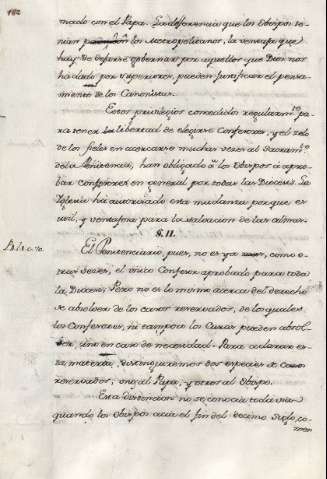 182
mado con el Papa. La deferencia que los Obispos te-
nian con los Metropolitanos, la ventaja que
hay de dejarse gobernar por aquellos que Dios nos
há dado por superiores, pueden justificar el pensa-
miento de los Canonistas.
Estos privilegios concedidos regularm.te pa-
ra tener la libertad de elegirse Confesores, y el zelo
de los fieles en acercarse muchas veces al Sacram.to
de la Penitencia, han obligado á los Obispos á apro-
bar confesores en general por todas las Diocesis. La
Iglesia há autorizado esta mudanza porque es
util, y ventajosa para la salvacion de las almas.
§. II.
El Penitenciario, pues, no es ya, como o-
tras veces, el único Confesor aprobado para toda
la Diocesis; Pero no es lo mismo acerca del derecho
de absolver de los casos reservados, de los quales
los Confesores, ni tampoco los Curas pueden absol-
ver, sino en caso de necesidad. Para aclarar es-
ta materia, distinguiremos dos especies de casos
reservados, unos al Papa, y otros al Obispo.
Esta distincion no se conocia toda via
quando los Obispos acia el fin del decimo siglo, co-